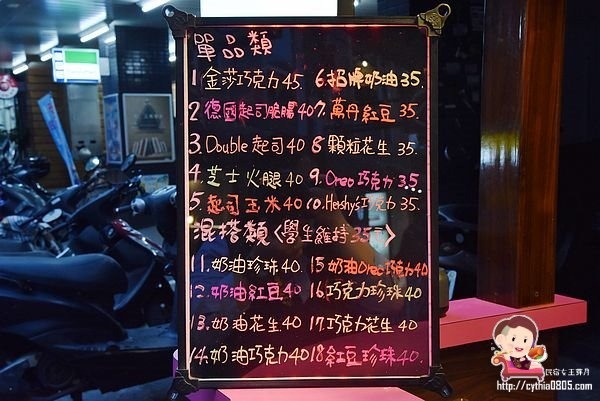 單品類
1 金莎巧克力 45 6. 招牌奶油 35.
2 德國起司脆腸 40 7. 萬丹紅豆 35.
3. Double 起司 40 8 顆粒花生 35.
4. 芝士火腿 40 9. Oreo 巧克力 35.
5. 起司玉米 40 10. Hershy's巧克力 35.
混搭類〈學生維持35元〉
11. 奶油珍珠 40. 15 奶油Oreo巧克力40
12. 奶油紅豆 40 16 巧克力珍珠 40
13. 奶油花生 40 17. 巧克力花生 40
14. 奶油巧克力 40 18 紅豆珍珠 40.
民宿女王芽月
http://cythia0805.com